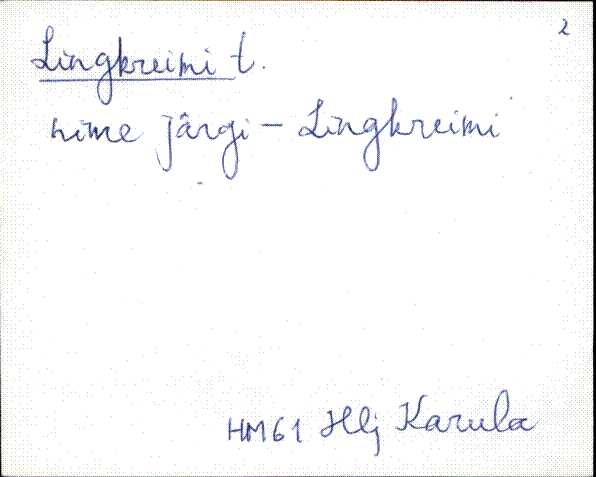 2
Lingkreimi t.
nime järgi – Lingkreimi
HM61 Hlj Karula